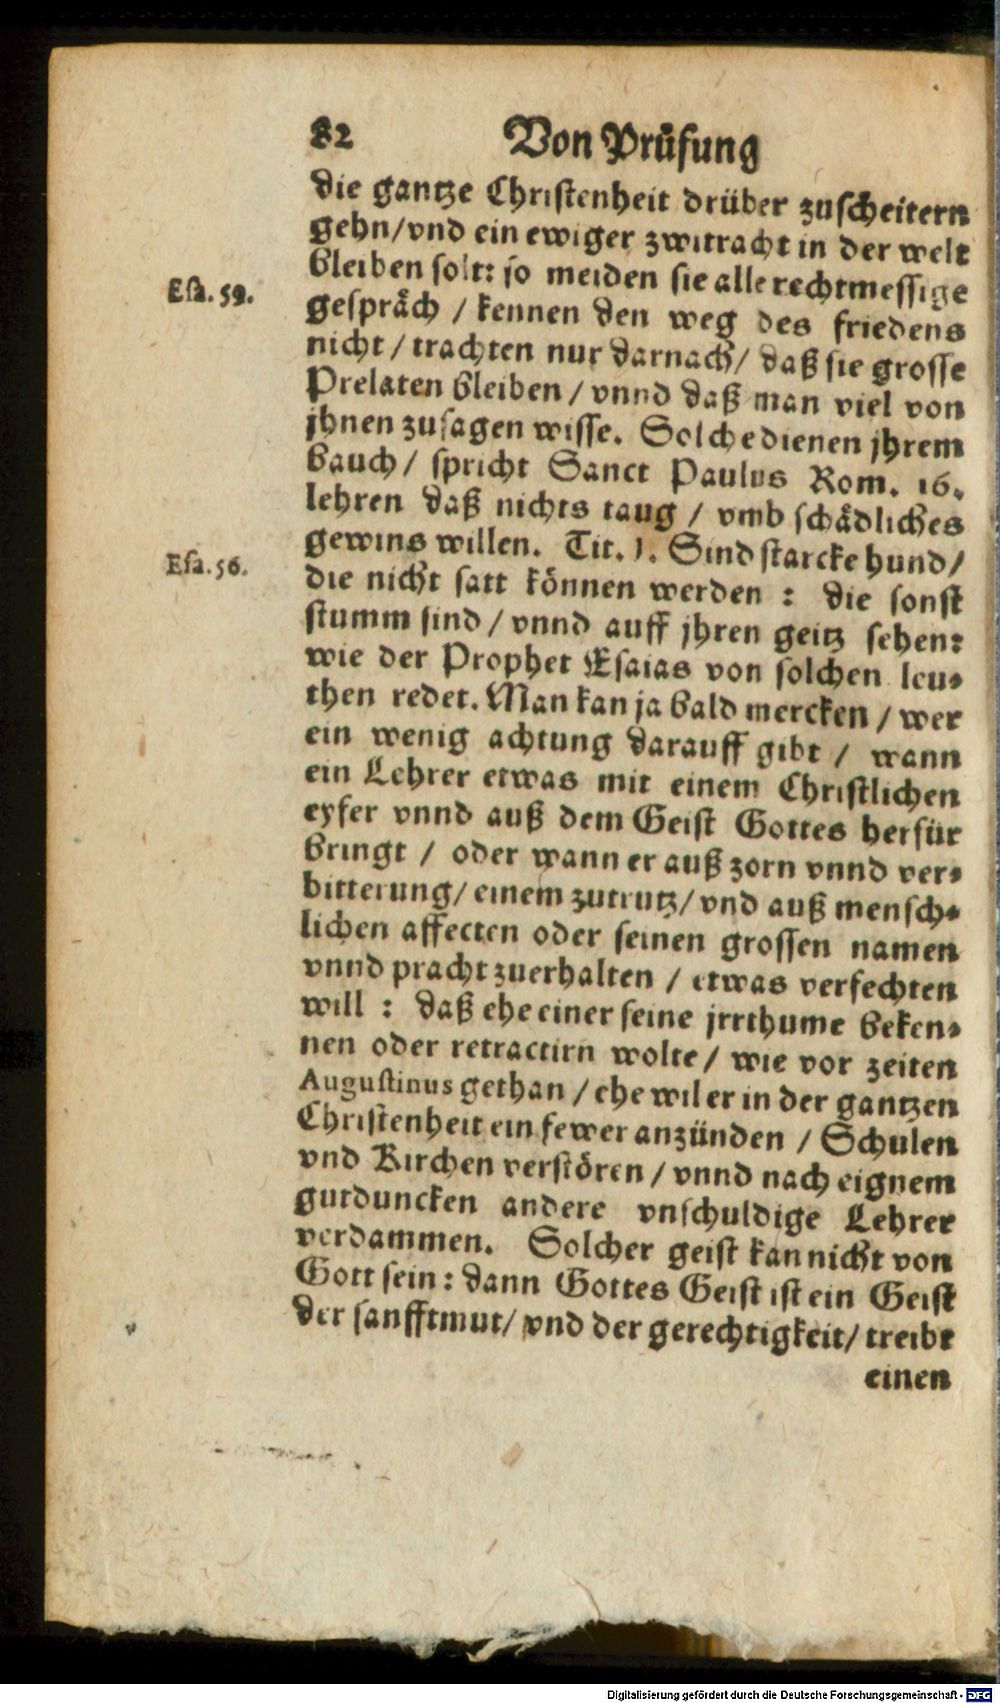 82 Von Průfung
die gantze Christenheit drüber zuscheitern
gehn/vnd ein ewiger zwitracht in der welt
bleiben solt: so meiden sie alle rechtmessige
Esa. 59.
gespråch / kennen den weg des friedens
nicht / trachten nur darnach/ daß sie grosse
Prelaten bleiben / vnnd daß man viel von
jhnen zusagen wisse. Solche dienen jhrem
bauch/ spricht Sanct Paulus Rom. 16.
lehren daß nichts taug / vmb schådliches
gewins willen. Tit. 1. Sind starcke hund/
Esa. 56.
die nicht satt können werden : die sonst
stumm sind / vnnd auff jhren geitz sehen:
wie der Prophet Esaias von solchen leu-
then redet. Man kan ja bald mercken / wer
ein wenig achtung darauff gibt / wann
ein Lehrer etwas mit einem Christlichen
eyfer vnnd auß dem Geist Gottes herfür
bringt / oder wann er auß zorn vnnd ver-
bitterung/ einem zutrutz/ vnd auß mensch-
lichen affecten oder seinen grossen namen
vnnd pracht zuerhalten / etwas verfechten
will : daß ehe einer seine jrrthume beken-
nen oder retractirn wolte / wie vor zeiten
Augustinus gethan / ehe wil er in der gantzen
Christenheit ein fewer anzünden / Schulen
vnd Kirchen verstören / vnnd nach eignem
gutduncken andere vnschuldige Lehrer
verdammen. Solcher geist kan nicht von
Gott sein : dann Gottes Geist ist ein Geist
der sanfftmut/ vnd der gerechtigkeit/ treibt
einen
Digitalisierung gefördert durch die Deutsche Forschungsgemeinschaft - DFG